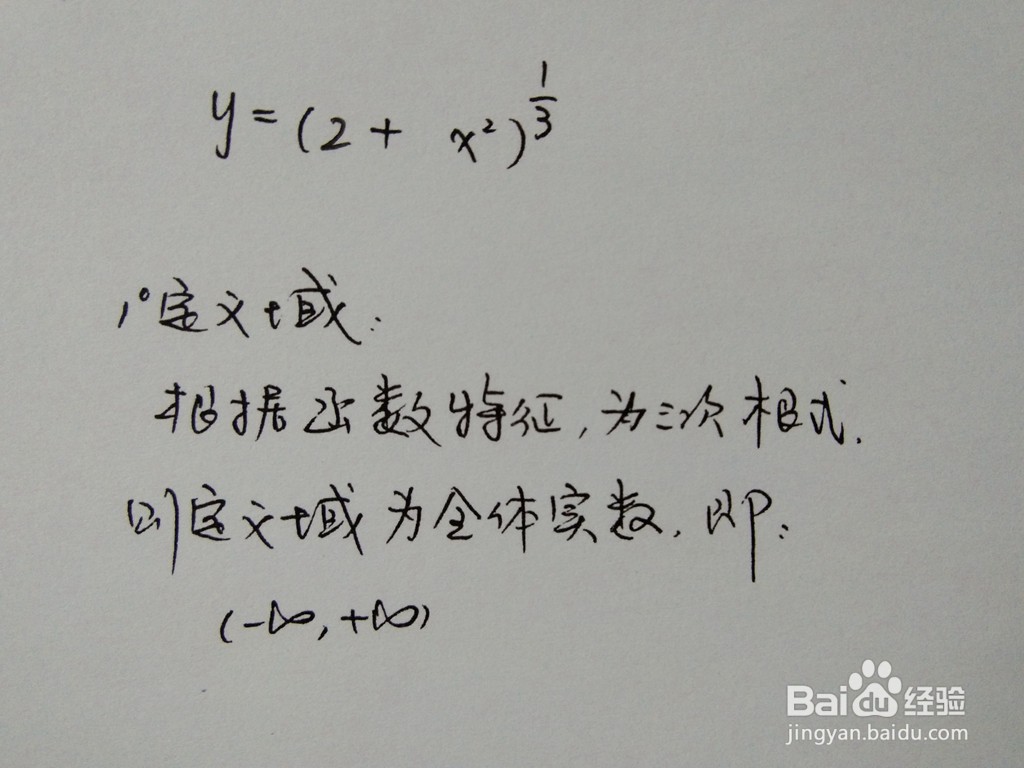 y = (2 + x²)^(1/3)
1° 定义域:
根据函数特征,为三次根式.
则定义域为全体实数,即:
(-∞,+∞)
Baidu经验
jingyan.baidu.com